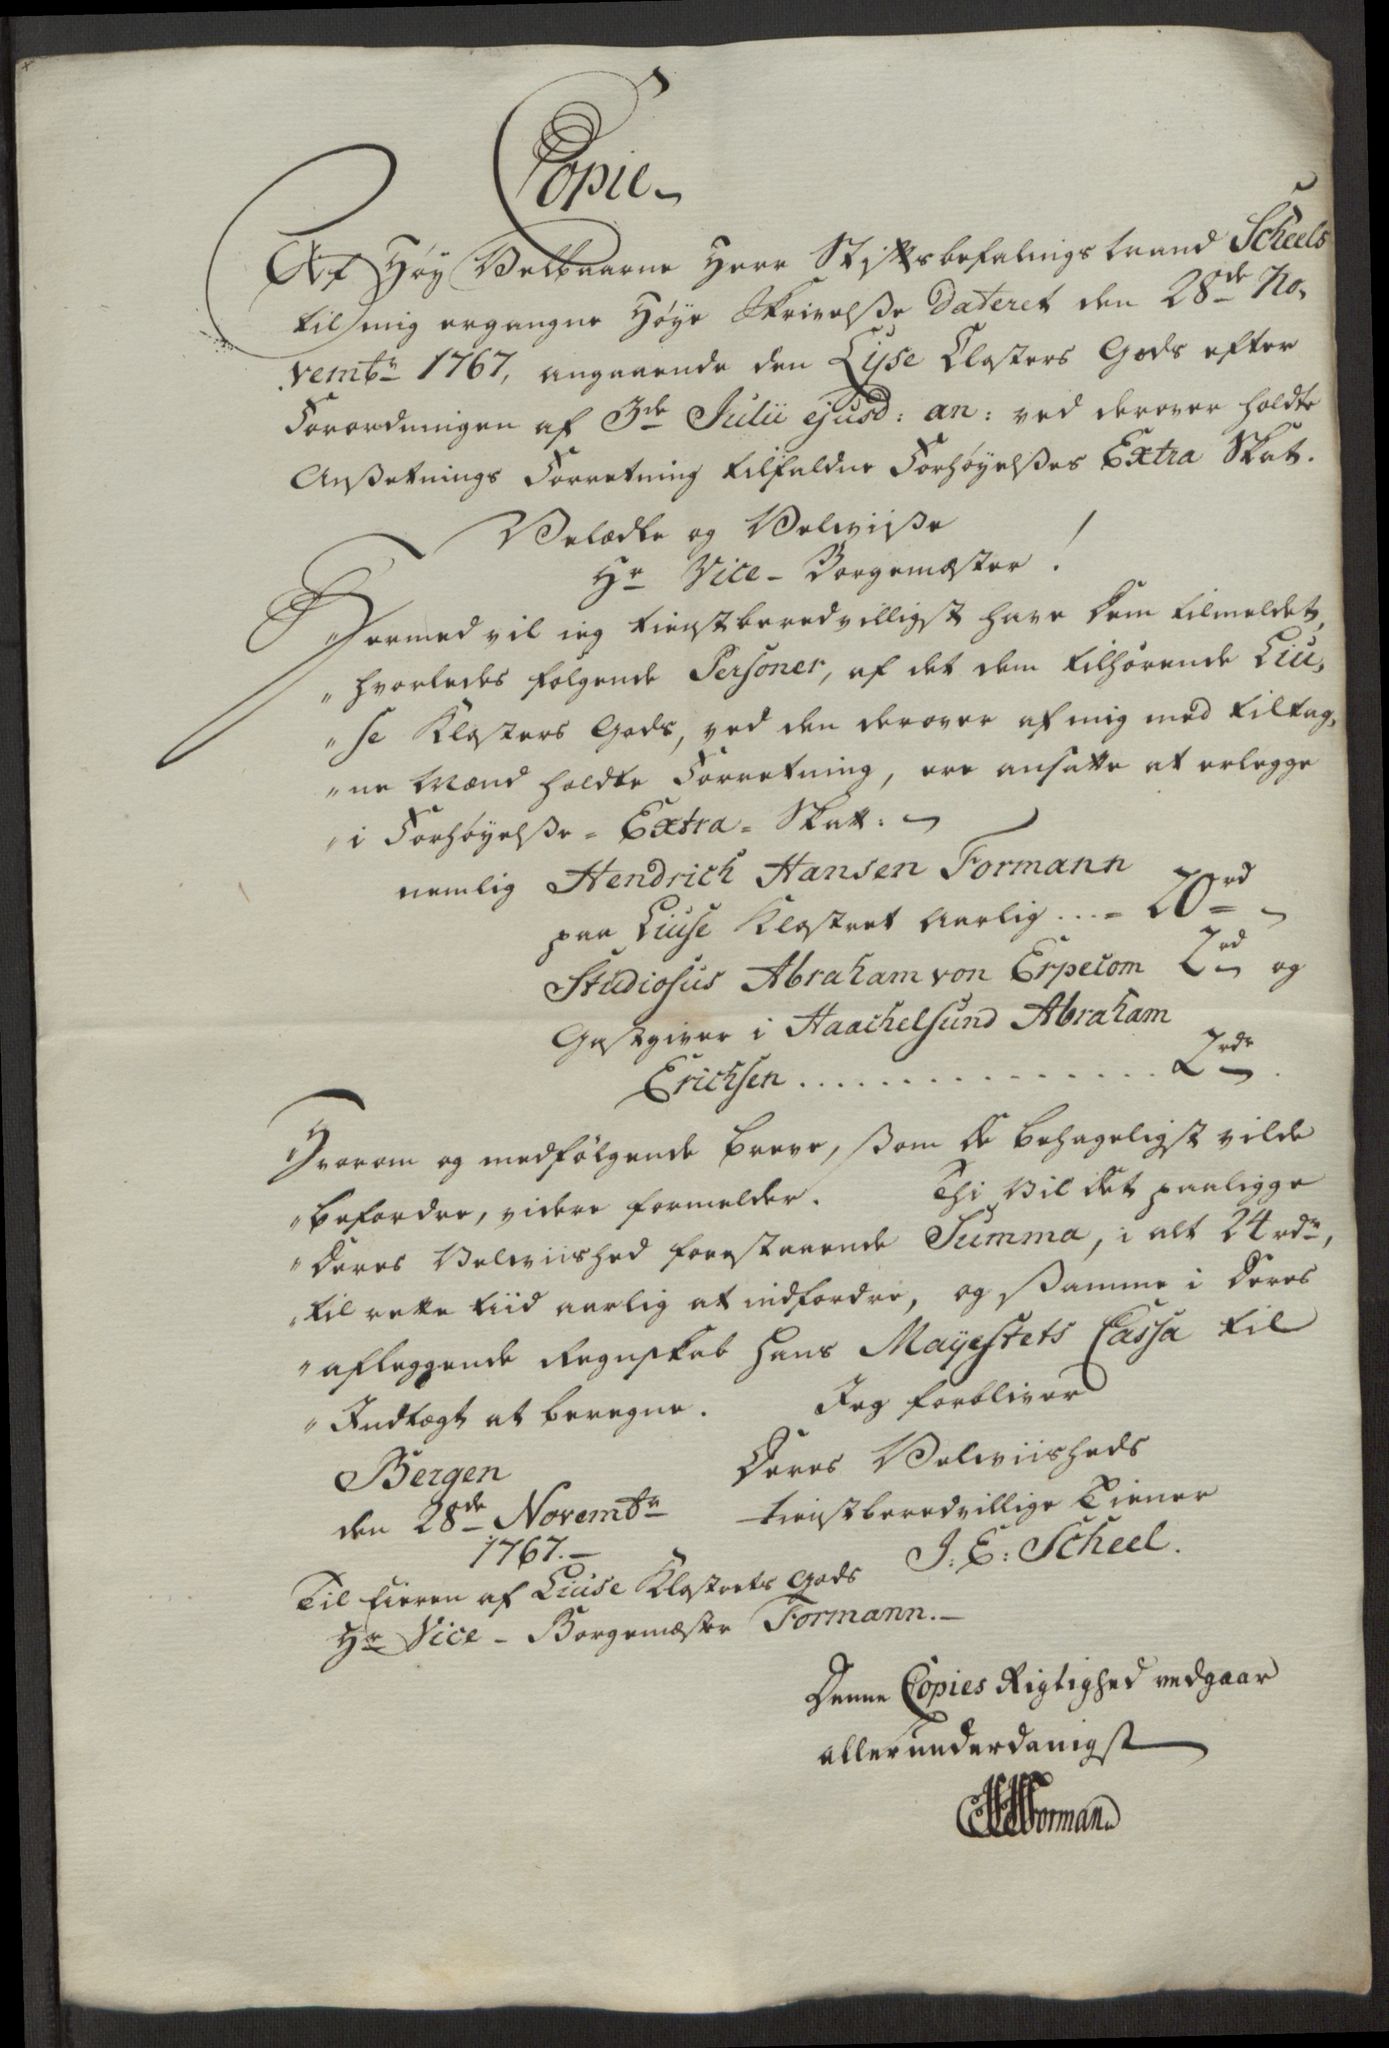 Copie
Af Høy Velbaarne Herr Stiftsbefalings Mand Scheels
til mig ergangne Høye Skrivelße dateret den 28de No,
vembr 1767, angaaende den Lyse Closters Gods efter
Forordningen af 3de Julii ejusd: an: ved derover holdte
Ansætnings Forretning tilfaldne Forhøyelßes Extra Skat.
Velædle og Velviiße
Hr Vice-Borgemæster!
Hermed vil ieg tienstberedvilligst have Dem tilmeldet,
" hvorledes følgende Personer, af det dem tilhørende Liu,
" se Klosters Gods, ved den derover af mig med tiltag,
" ne Mænd holdte Forretning, ere ansatte at erlegge
" i Forhøyelße-Extra-Skatt:
nemlig Hendrich Hansen Formann
paa Liuse Klostret Aarlig ... 20rd
Studiosus Abraham von Erpecom 2rd og
Gæstgiver i Haachelsund Abraham
Erichsen ............... 2rdr.
Hvorom og medfølgende breve, ßom De behageligst vilde
" befordre, videre formelder. Thi vil det paaligge
" Deres Velviished forestaaende Summa, i alt 24 rdr,
" til rette tiid aarlig at indfordre, og ßamme i Deres
" aflæggende Regnskab Hans Mayestets Cassa til
" Indtægt at beregne. Jeg forbliver
Bergen Deres Velviisheds
den 28de Novembr tienstberedvillige Tiener
1767. J: E: Scheel.
Til Eieren af Liuse Klostrets Gods
Hr Vice-Borgemæster Formann.
Denne Copies Rigtighed vedgaar
allerunderdanigst
HHForman